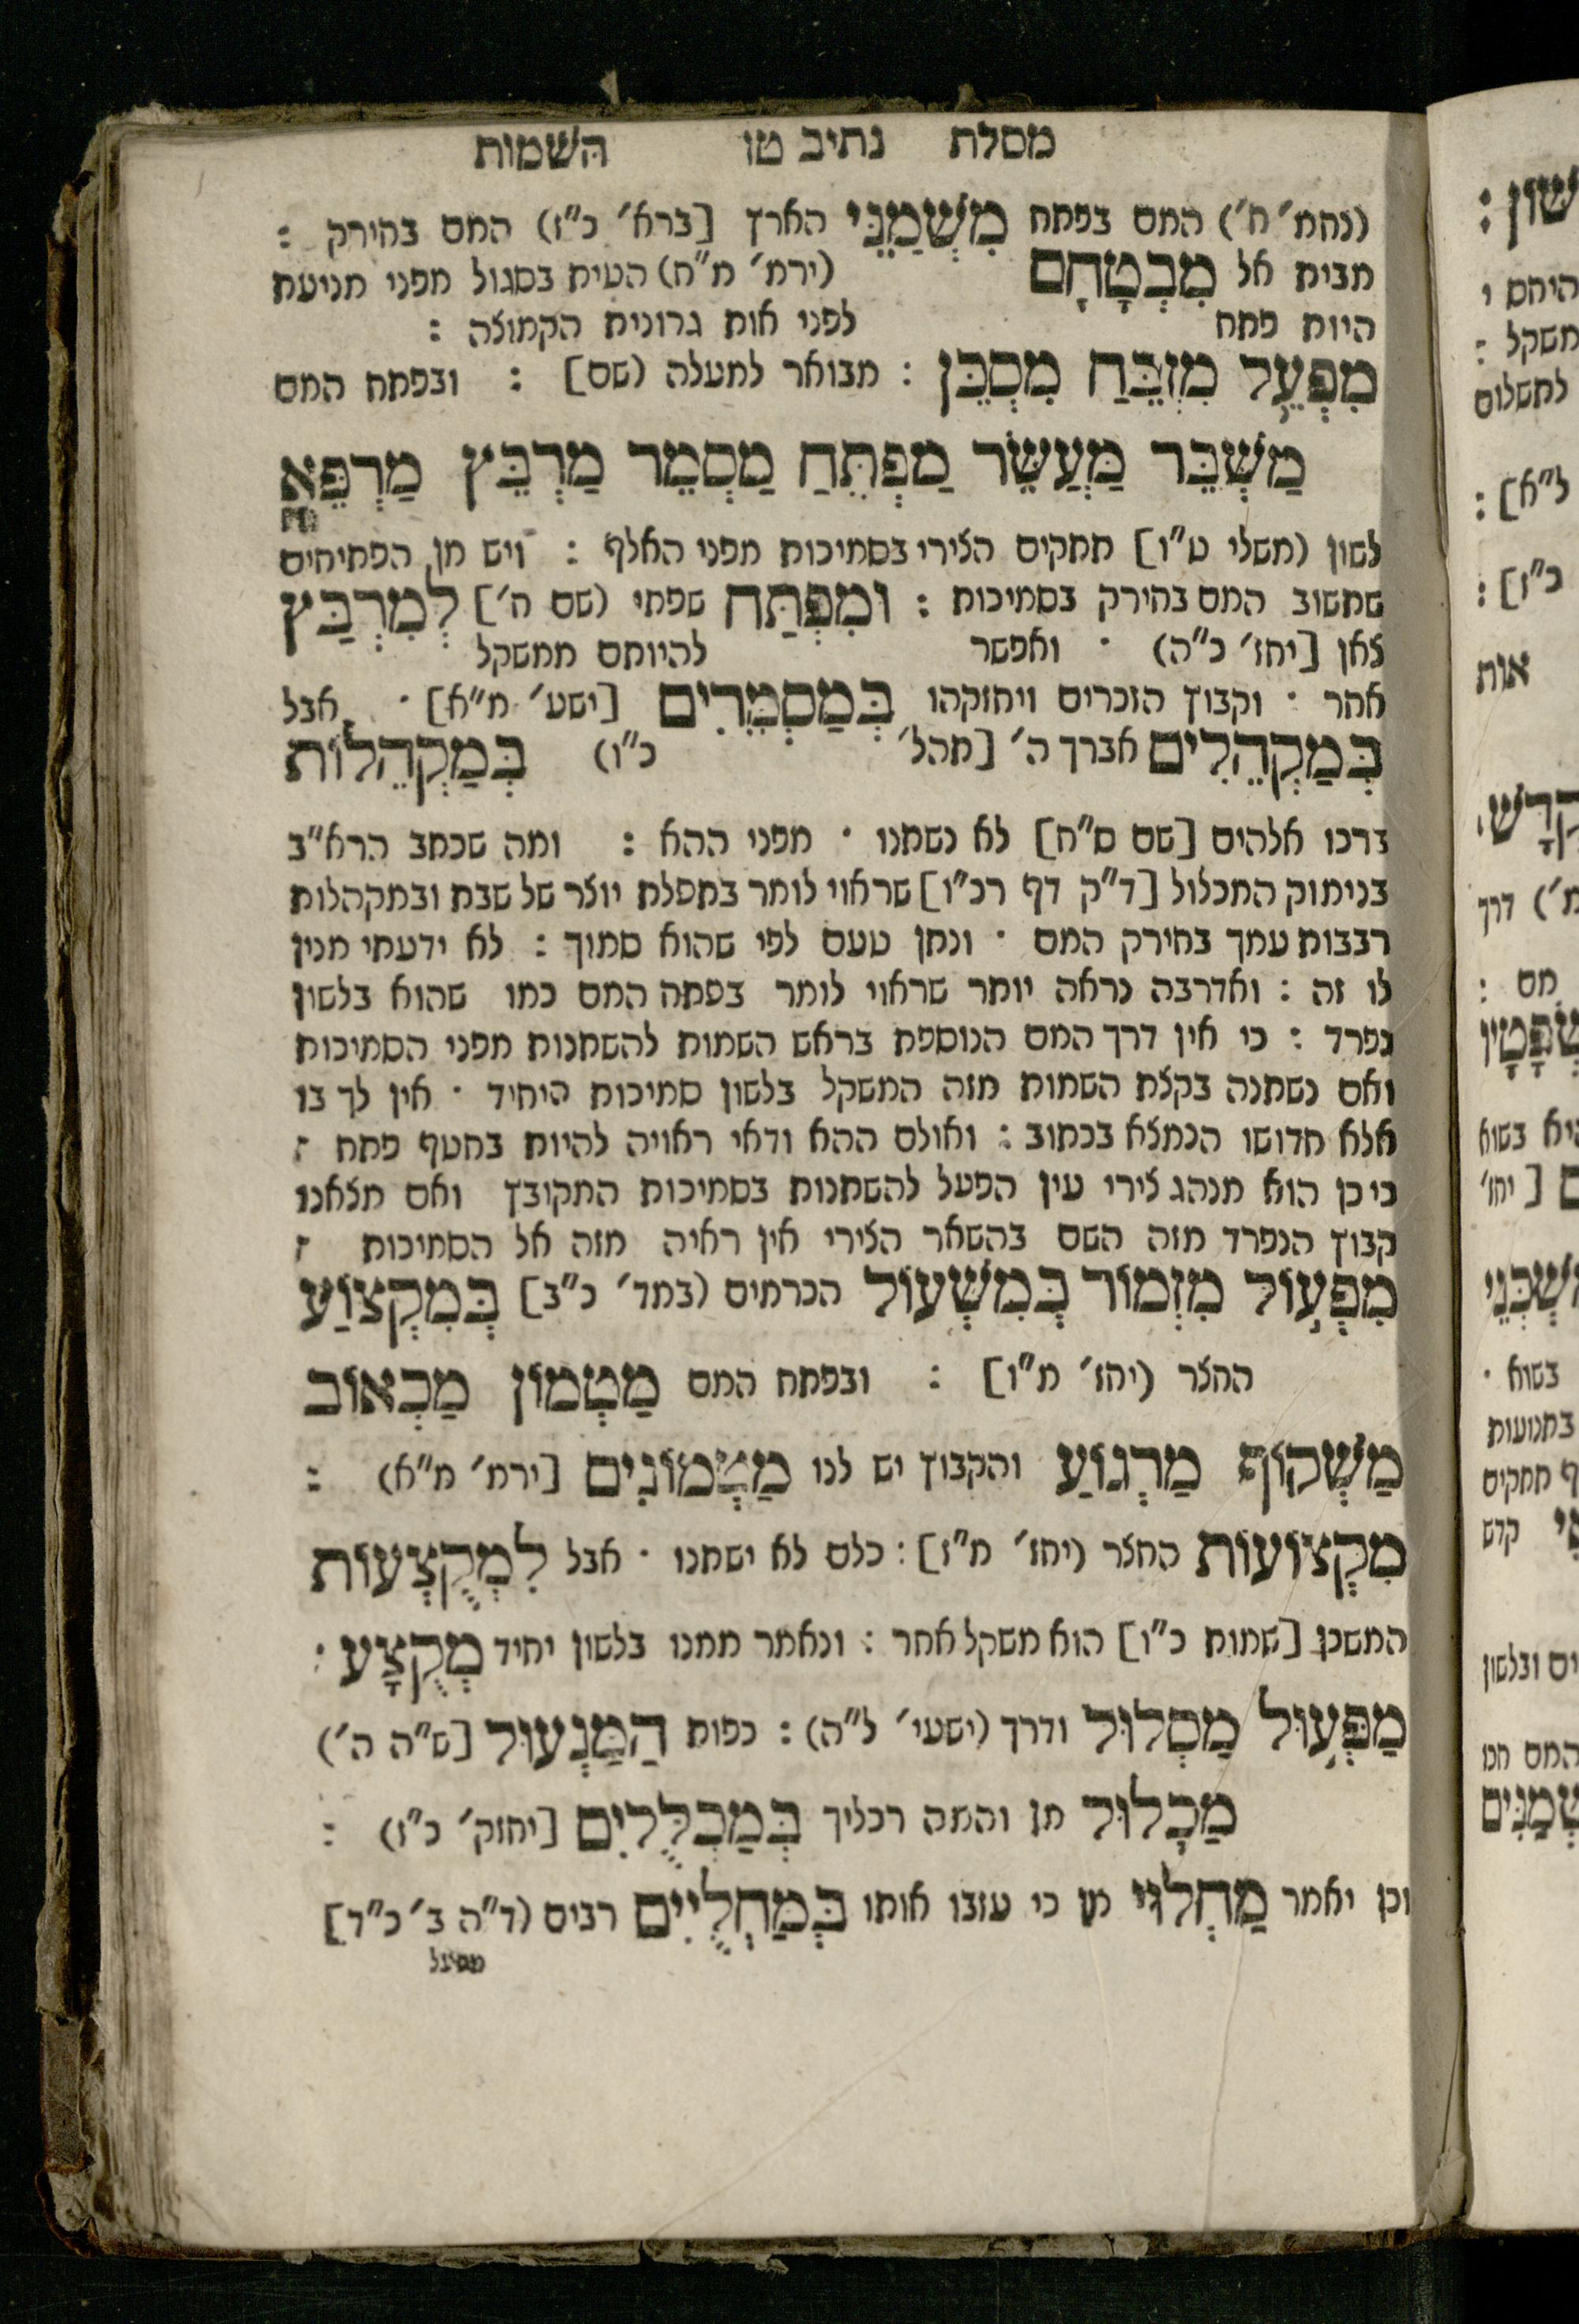 מסלת נתיב טו השמות
(נחמ׳ ח׳) המם בפתח מִשְׁמַנֵּי הארץ [ברא׳ כ״ז) המם בחירק :
מבית אל מִבְטֶחָם (ירמ׳ מ״ח) הטית בסגול מפני מניעת
היות פתח לפני אות גרונית הקמוצה :
מִפְעֵל מִזְבֵּחַ מִסְכֵּן : מבואר למעלה (שם] : ובפתח המם
מַשְׁבֵּר מַעֲשֵׂר מַפְתֵּחַ מַסְמֵר מַרְבֵּץ מַרְפֵּא
לשון (משלי ט״ו] תתקים הצירי בסמיכות מפני האלף : ויש מן הפתיחים
שתשוב המם בחירק בסמיכות : וּמִפְתַּח שפתי (שם ח׳] לְמִרְבַּץ
צאן [יחז׳ כ״ה) · ואפשר להיותם ממשקל
אחר · וקבוץ הזכרים ויחזקהו בְּמַסְמְרִים [ישע׳ מ״א] · אבל
בְּמַקְהֵלִים אברך ה׳ [תהל׳ כ״ו) בְּמַקְהֵלוֹת
ברכו אלהים [שם ס״ח] לא נשתנו · מפני ההא : ומה שכתב הרא״ב
בנימוק המכלול [ד״ק דף רכ״ו] שראוי לומר בתפלת יוצר של שבת ובמקהלות
רבבות עמך בחירק המם · ונתן טעם לפי שהוא סמוך : לא ידעתי מנין
לו זה : ואדרבה נראה יותר שראוי לומר בפתח המם כמו שהוא בלשון
נפרד : כי אין דרך המם הנוספת בראש השמות להשתנות מפני הסמיכות
ואם נשתנה בקצת השמות מזה המשקל בלשון סמיכות היחיד · אין לך בו
אלא חדושו הנמצא בכתוב : ואולם ההא ודאי ראויה להיות בחטף פתח :
כי כן הוא מנהג צירי עין הפעל להשתנות בסמיכות המקובץ ואם מצאנו
קבוץ הנפרד מזה השם בהשאר הצירי אין ראיה מזה אל הסמיכות :
מִפְעוֹל מִזְמוֹר בְּמִשְׁעוֹל הכרמים (במד׳ כ״ב] בְּמִקְצוֹעַ
החצר (יחז׳ מ״ו] : ובפתח המם מַטְמוֹן מַכְאוֹב
מַשְׁקוֹף מַרְגוֹעַ והקבוץ יש לנו מַטְמוֹנִים [ירמ׳ מ״א) :
מִקְצוֹעוֹת החצר (יחז׳ מ״ו] : כלם לא ישתנו · אבל לִמְקֻצְעוֹת
המשכן [שמות כ״ו] הוא משקל אחר : ונאמר ממנו בלשון יחיד מְקֻצָּע :
מַפְעוּל מַסְלוּל ודרך (ישעי׳ ל״ה) : כפות הַמַּנְעוּל [ש״ה ה׳)
מַכְלוּל מן והמה רכליך בְּמַכְלֻלִים [יחזק׳ כ״ז) :
וכן יאמר מַחְלוּי מן כי עזבו אותו בְּמַחְלֻיִים רבים (ד״ה ב׳ כ״ד]
שון :
היחס י
משקל :
לתשלום
ל״א] :
כ״ז] :
אות
מ׳) דרך
מם :
היא בשוא
ם [יחז׳
בשוא ·
בתנועות
ף תתקים
קדש
ים ובלשון